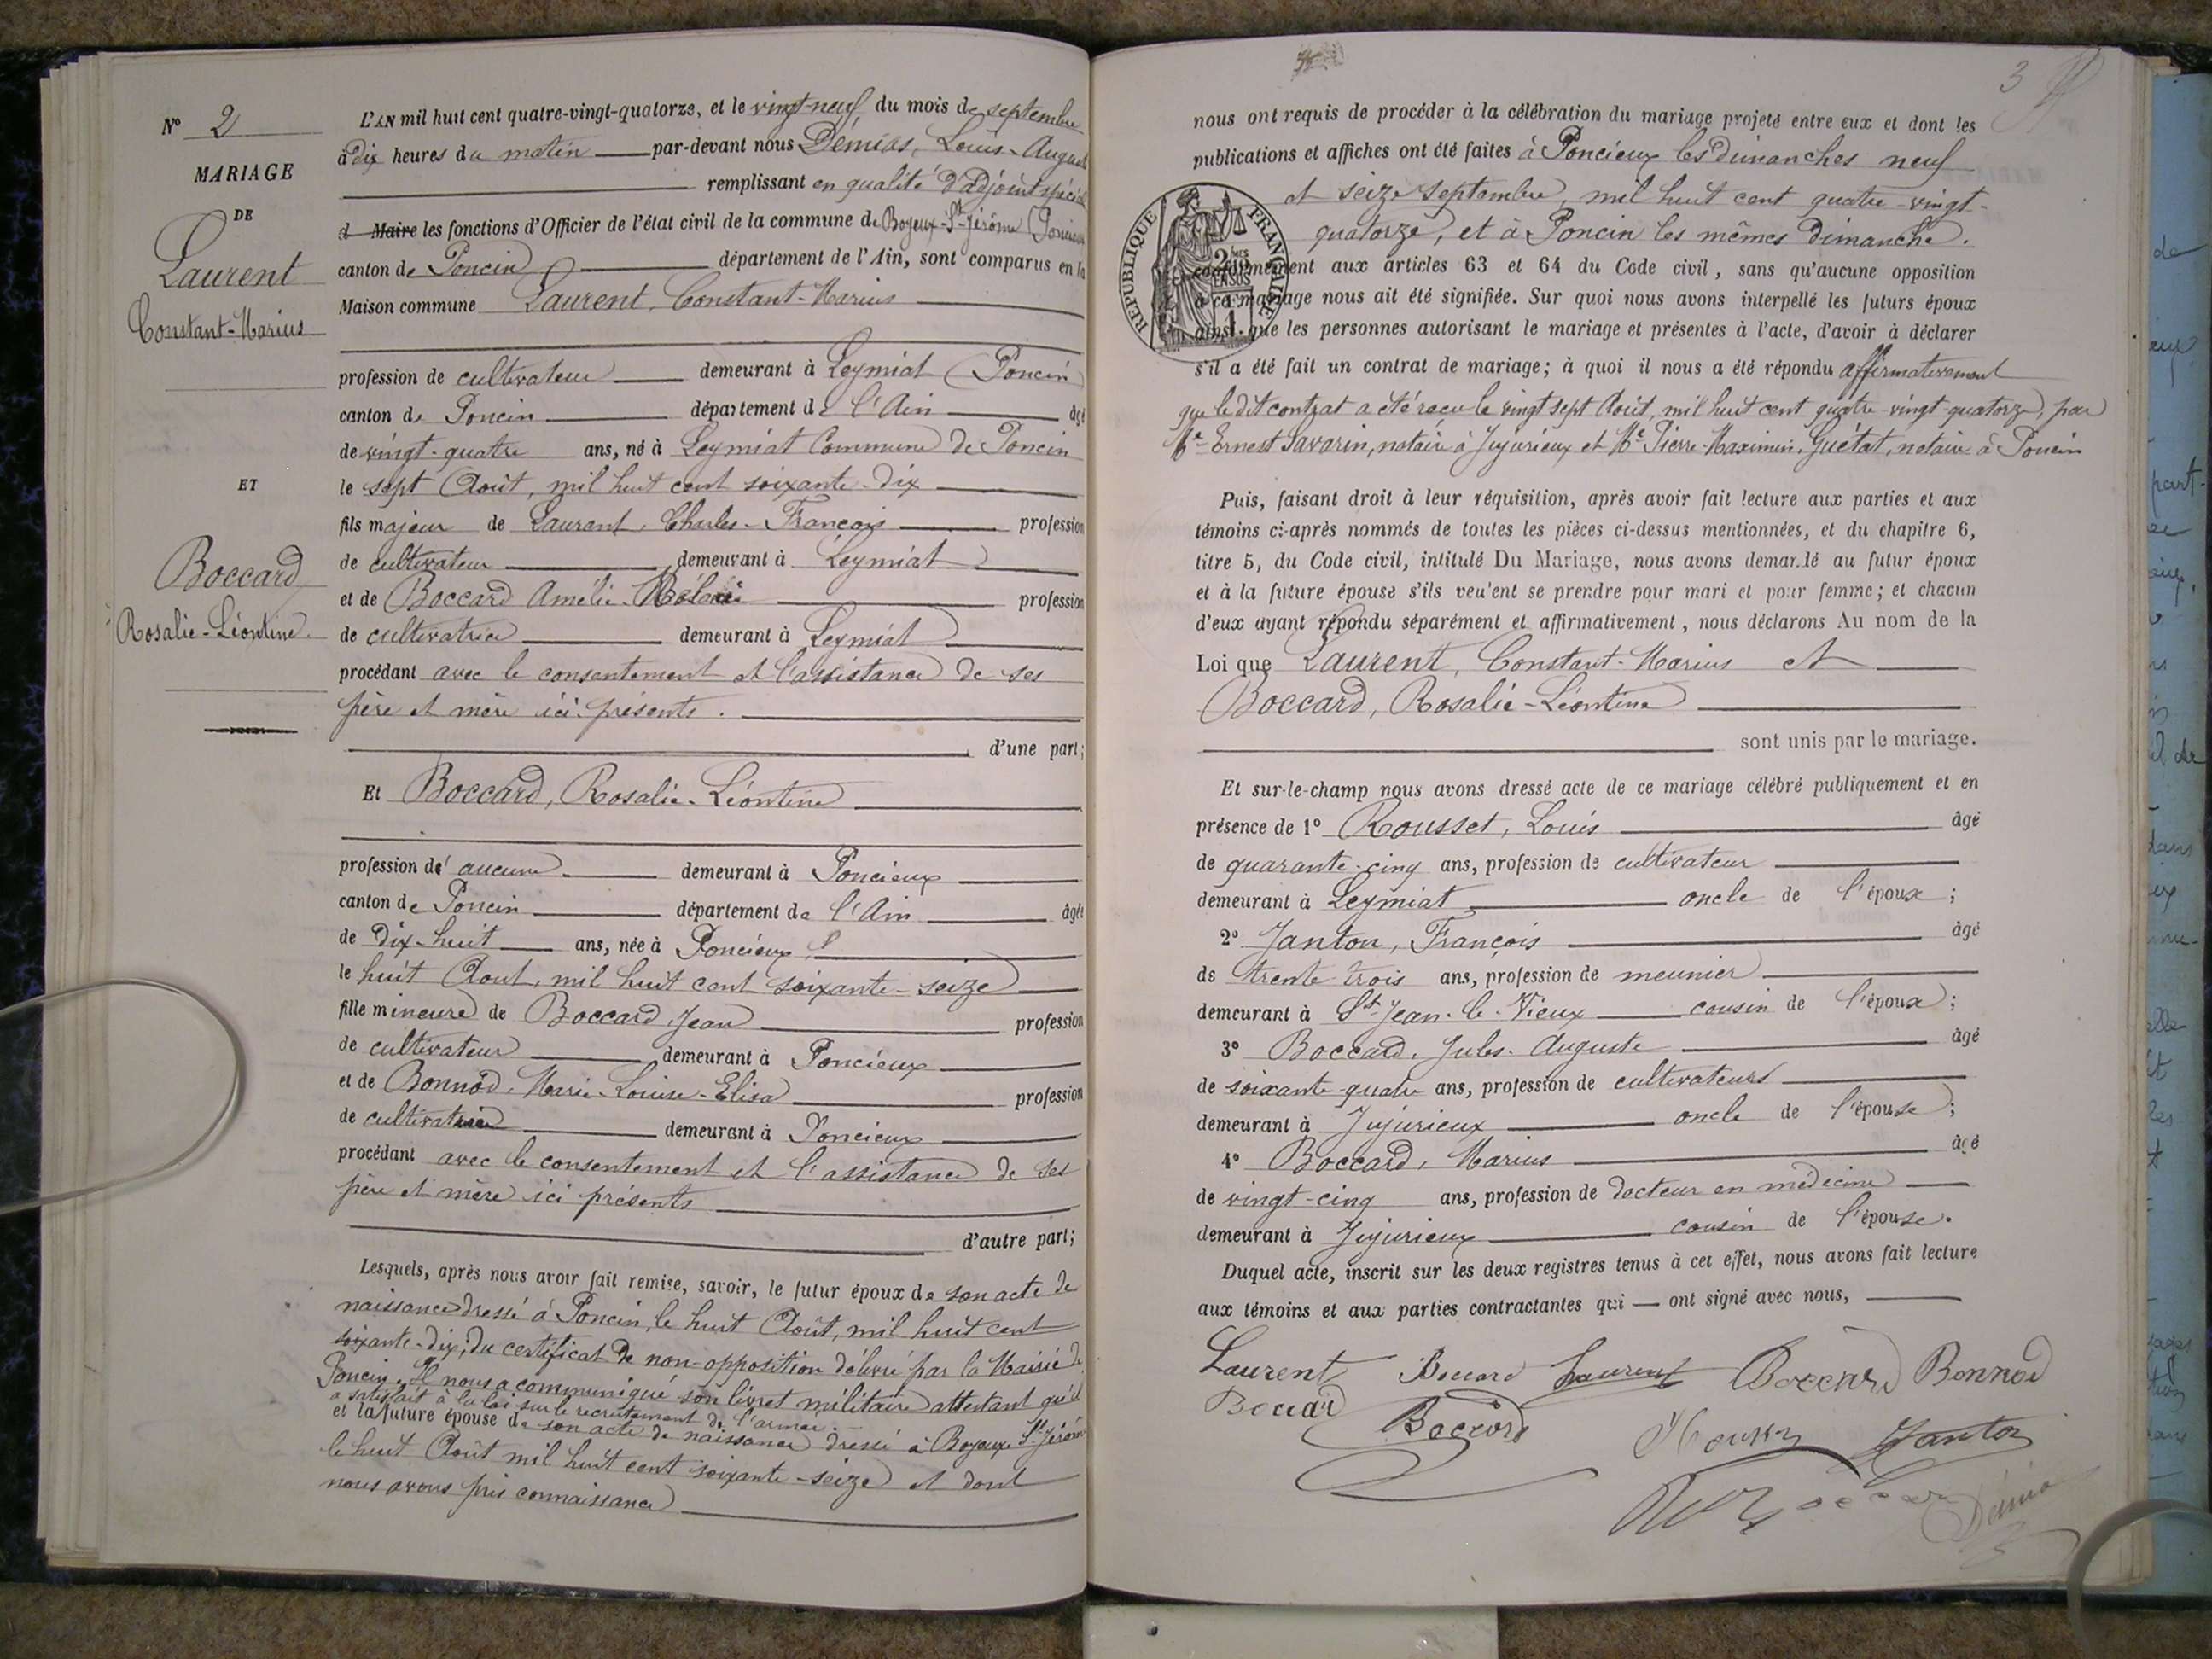 N° 2
MARIAGE
DE
Laurent
Constant-Marius
ET
Boccard
Rosalie-Léontine
L'AN mil huit cent quatre-vingt-quatorze, et le vingt-neuf, du mois de septembre
à dix heures du matin par-devant nous Démias, Louis-Auguste
remplissant en qualité d'adjoint spécial
d Maire les fonctions d'Officier de l'état civil de la commune de Boyeux-St-Jérôme (Poncieux
canton de Poncin département de l'Ain, sont comparus en la
Maison commune Laurent, Constant-Marius
profession de cultivateur demeurant à Leymiat (Poncin)
canton de Poncin département de l'Ain âgé
de vingt-quatre ans, né à Leymiat Commune de Poncin
le sept Août, mil huit cent soixante-dix
fils majeur de Laurent, Charles-François profession
de cultivateur demeurant à Leymiat
et de Boccard Amélie profession
de cultivatrice demeurant à Leymiat
procédant avec le consentement et l'assistance de ses
père et mère ici présents.
d'une part;
Et Boccard, Rosalie-Léontine
profession de aucune demeurant à Poncieux
canton de Poncin département de l'Ain âgée
de dix-huit ans, née à Poncieux
le huit Aout, mil huit cent soixante-seize
fille mineure de Boccard, Jean profession
de cultivateur demeurant à Poncieux
et de Bonnod, Marie-Louise-Elisa profession
de cultivatrice demeurant à Poncieux
procédant avec le consentement et l'assistance de ses
père et mère ici présents
d'autre part;
Lesquels, après nous avoir fait remise, savoir, le futur époux de son acte de
naissance dressé à Poncin, le huit Août, mil huit cent
soixante-dix; du certificat de non-opposition délivré par la Mairie de
Poncin. Il nous a communiqué son livret militaire attestant qu'il
a satisfait à la loi sur le recrutement de l'armée.
et la future épouse de son acte de naissance dressé à Boyeux-St-Jérôme
le huit Août mil huit cent soixante-seize et dont
nous avons pris connaissance
3
nous ont requis de procéder à la célébration du mariage projeté entre eux et dont les
publications et affiches ont été faites à Poncieux les dimanches neuf
et seize septembre, mil huit cent quatre-vingt-
quatorze, et à Poncin les mêmes dimanche.
REPUBLIQUE FRANÇAISE
conformément aux articles 63 et 64 du Code civil, sans qu'aucune opposition
à ce mariage nous ait été signifiée. Sur quoi nous avons interpellé les futurs époux
ainsi que les personnes autorisant le mariage et présentes à l'acte, d'avoir à déclarer
s'il a été fait un contrat de mariage; à quoi il nous a été répondu affirmativement
que le dit contrat a été reçu le vingt sept Août, mil huit cent quatre-vingt-quatorze, par
Me Ernest Savarin, notaire à Jujurieux et Me Pierre-Maximin Guétat, notaire à Poncin
Puis, faisant droit à leur réquisition, après avoir fait lecture aux parties et aux
témoins ci-après nommés de toutes les pièces ci-dessus mentionnées, et du chapitre 6,
titre 5, du Code civil, intitulé Du Mariage, nous avons demandé au futur époux
et à la future épouse s'ils veulent se prendre pour mari et pour femme; et chacun
d'eux ayant répondu séparément et affirmativement, nous déclarons Au nom de la
Loi que Laurent, Constant-Marius et
Boccard, Rosalie-Léontine
sont unis par le mariage.
Et sur-le-champ nous avons dressé acte de ce mariage célébré publiquement et en
présence de 1° Rousset, Louis âgé
de quarante-cinq ans, profession de cultivateur
demeurant à Leymiat oncle de l'époux;
2° Janton, François âgé
de trente-trois ans, profession de meunier
demeurant à St-Jean-le-Vieux cousin de l'époux;
3° Boccard, Jules-Auguste âgé
de soixante-quatre ans, profession de cultivateurs
demeurant à Jujurieux oncle de l'épouse;
4° Boccard, Marius âgé
de vingt-cinq ans, profession de docteur en médecine
demeurant à Jujurieux cousin de l'épouse.
Duquel acte, inscrit sur les deux registres tenus à cet effet, nous avons fait lecture
aux témoins et aux parties contractantes qui ont signé avec nous,
Laurent Boccard Laurent Boccard Bonnod
Boccard Boccard Janton
Démias